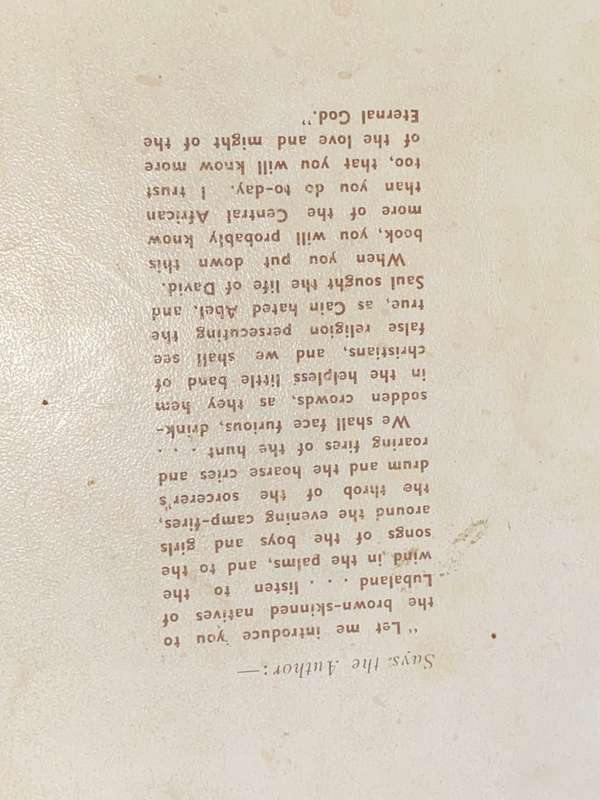 Says the Author:—
"Let me introduce you to
the brown-skinned natives of
Lubaland . . . listen to the
wind in the palms, and to the
songs of the boys and girls
around the evening camp-fires,
the throb of the sorcerer's
drum and the hoarse cries and
roaring fires of the hunt . . .
We shall face furious, drink-
sodden crowds, as they hem
in the helpless little band of
christians, and we shall see
false religion persecuting the
true, as Cain hated Abel, and
Saul sought the life of David.
When you put down this
book, you will probably know
more of the Central African
than you do to-day. I trust
too, that you will know more
of the love and might of the
Eternal God."